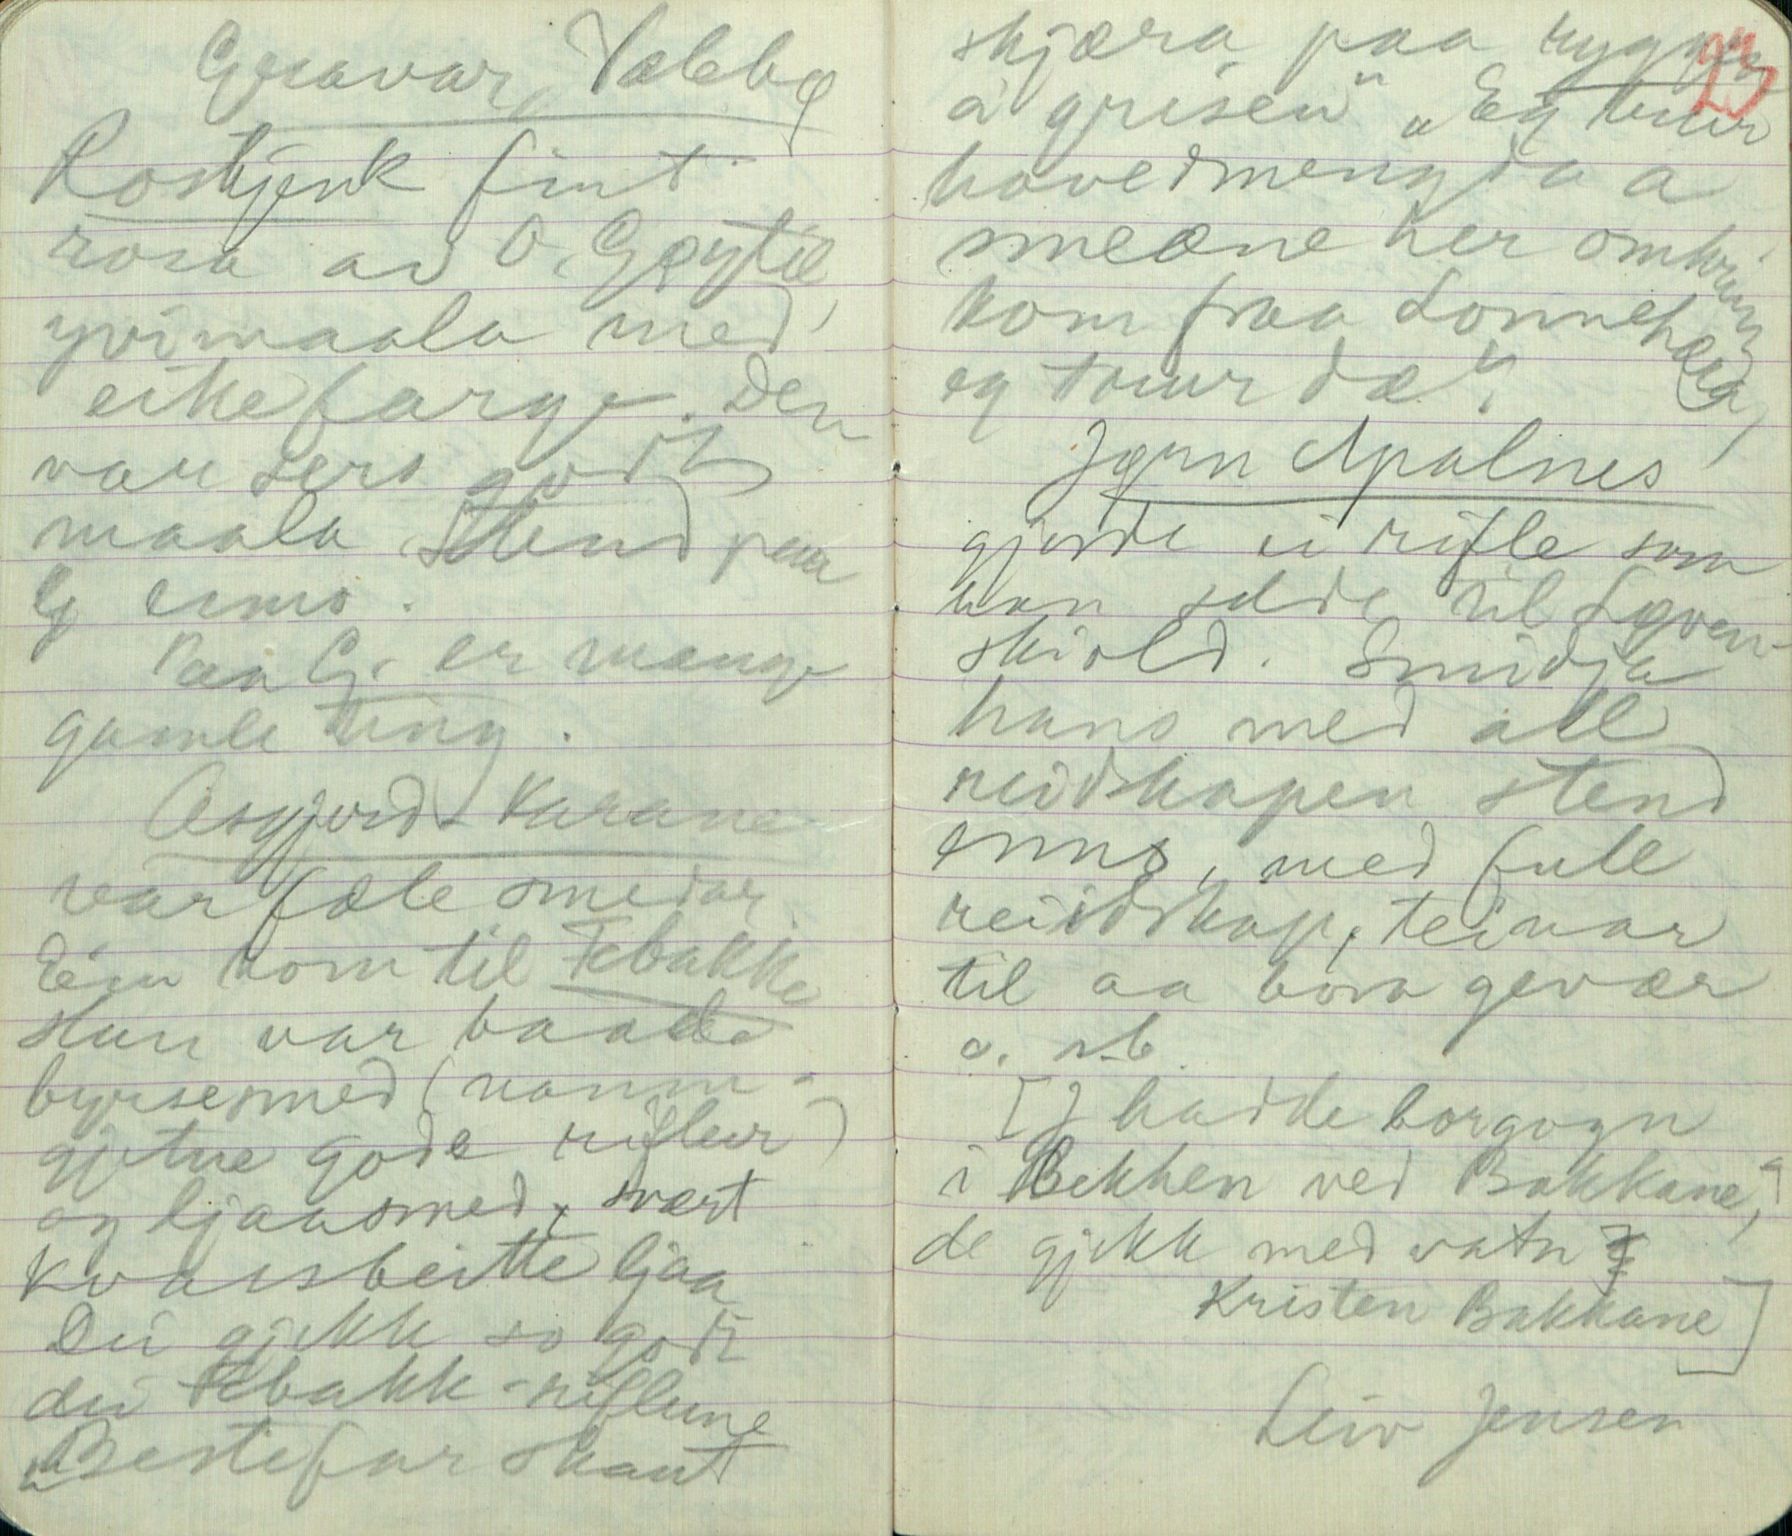 Gravar, Vælebø
Rosskjenk fint
rosa av O. Gøytil
yvimaala med
eikefarge. Den
var sers godt
maala. Stend paa
G enno.
Paa G. er mange
gamle ting.
Asgjerd-Karane
var fæle smedar.
Ein kom til Febakke
Han var baade
byrsesmed (namn-
gjetne gode riflur)
og ljaasmed, svært
kvassbeitte ljaa
Dei gjekk so godt
dei Febakk-riflune
"Bestefar skaut
23
skjæra paa ryggje
a grisen" "Eg trur
hovedmengda a
smeane her omkring
kom fraa Lonnehæia,
eg trur dæ".
Jørn Apalnes
gjorde ei rifle som
han selde til Løven-
skiold. Smidja
hans med all
reidskapen stend
enno, med full
reidskap, teinar
til aa bora gevær
o. s. b.
[J hadde borgogn
i Bekken ved Bakkane,
de gjekk med vatn
Kristen Bakkane]
Leiv Jensen